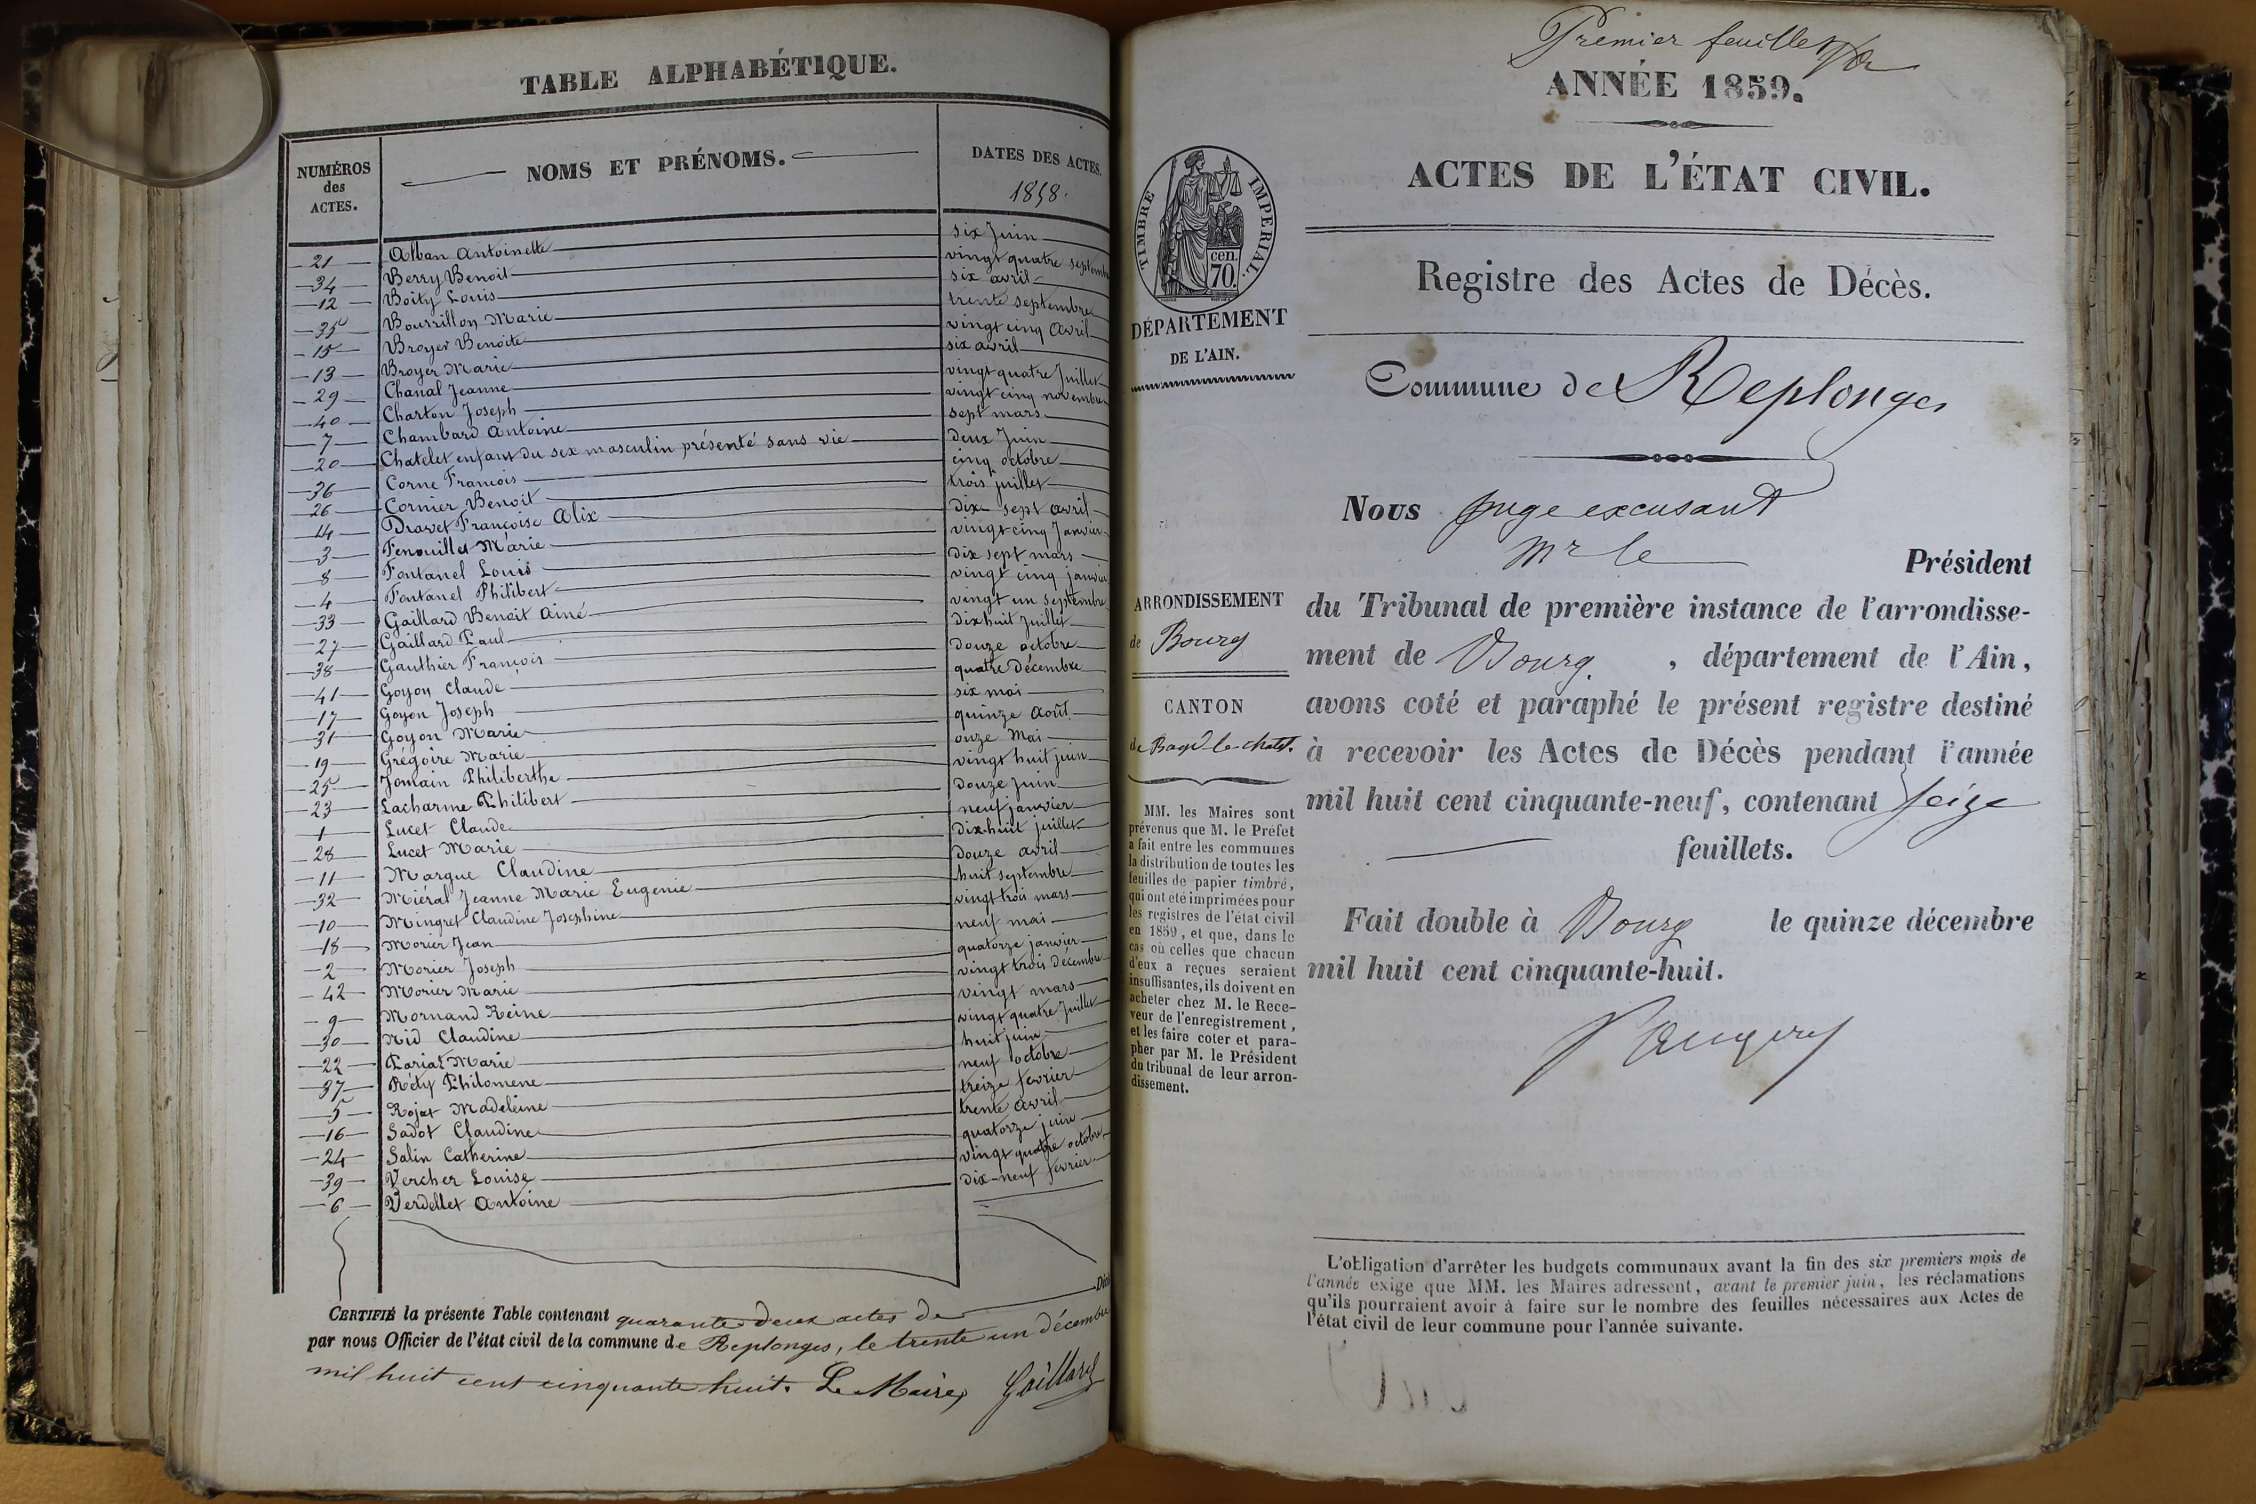 TABLE ALPHABÉTIQUE.
NUMÉROS des ACTES.
NOMS ET PRÉNOMS.
DATES DES ACTES.
1858.
21 Alban Antoinette six Juin
34 Berry Benoit vingt quatre septembre
12 Boity Louis six avril
35 Bourrillon Marie trente septembre
15 Broyer Benoite vingt cinq avril
13 Broyer Marie six avril
29 Chanal Jeanne vingt quatre Juillet
40 Charton Joseph vingt cinq novembre
7 Chambard Antoine sept mars
20 Chatelet enfant du sex masculin présenté sans vie deux Juin
36 Corne François cinq octobre
26 Cornier Benoit trois juillet
14 Dravet Françoise Alix dix sept avril
3 Fenouillet Marie vingt cinq Janvier
8 Fontanel Louis dix sept mars
4 Fontanel Philibert vingt cinq janvier
33 Gaillard Benoit Ainé vingt un septembre
27 Gaillard Paul dix huit Juillet
38 Gauthier François douze octobre
41 Goyon Claude quatre Décembre
17 Goyon Joseph six mai
31 Goyon Marie quinze Août
19 Grégoire Marie onze Mai
25 Jomain Philiberthe vingt huit juin
23 Lacharme Philibert douze Juin
1 Lucet Claude neuf janvier
28 Lucet Marie dix-huit juillet
11 Margue Claudine douze avril
32 Miéral Jeanne Marie Eugenie huit septembre
10 Mingret Claudine Josephine vingt trois mars
18 Morier Jean neuf mai
2 Morier Joseph quatorze janvier
42 Morier Marie vingt trois décembre
9 Mornand Reine vingt mars
30 Nid Claudine vingt quatre Juillet
22 Pariat Marie huit juin
37 Réty Philomene neuf octobre
5 Rojat Madeleine treize fevrier
16 Sadot Claudine trente avril
24 Salin Catherine quatorze juin
39 Vercher Louise vingt quatre octobre
6 Verdellet Antoine dix-neuf fevrier
CERTIFIÉ la présente Table contenant quarante deux actes de
par nous Officier de l'état civil de la commune de Replonges, le trente un décembre
mil huit cent cinquante huit. Le Maire, Gaillard
Premier feuillet
ANNÉE 1859.
ACTES DE L'ÉTAT CIVIL.
TIMBRE IMPERIAL.
cen.
70.
Registre des Actes de Décès.
DÉPARTEMENT
DE L'AIN.
Commune de Replonges
Nous juge excusant
Mr le Président
ARRONDISSEMENT
de Bourg
CANTON
de Bagé le chatel.
du Tribunal de première instance de l'arrondisse-
ment de Bourg, département de l'Ain,
avons coté et paraphé le présent registre destiné
à recevoir les Actes de Décès pendant l'année
mil huit cent cinquante-neuf, contenant seize
feuillets.
Fait double à Bourg le quinze décembre
mil huit cent cinquante-huit.
MM. les Maires sont
prévenus que M. le Préfet
a fait entre les communes
la distribution de toutes les
feuilles de papier timbré,
qui ont été imprimées pour
les registres de l'état civil
en 1859, et que, dans le
cas où celles que chacun
d'eux a reçues seraient
insuffisantes, ils doivent en
acheter chez M. le Rece-
veur de l'enregistrement,
et les faire coter et para-
pher par M. le Président
du tribunal de leur arron-
dissement.
L'obligation d'arrêter les budgets communaux avant la fin des six premiers mois de
l'année exige que MM. les Maires adressent, avant le premier juin, les réclamations
qu'ils pourraient avoir à faire sur le nombre des feuilles nécessaires aux Actes de
l'état civil de leur commune pour l'année suivante.